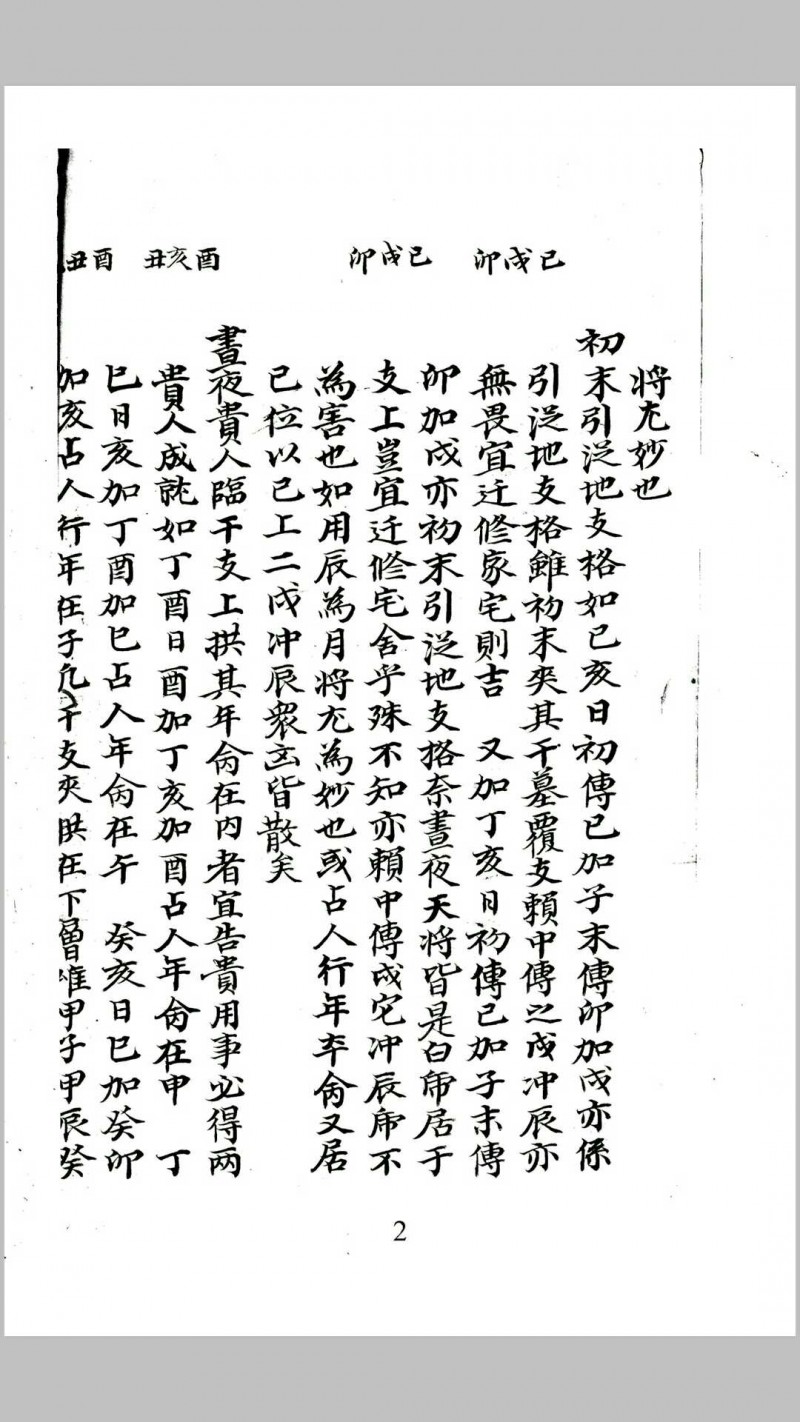 卯戌巳
卯戌巳
丑亥酉
丑酉
將尤妙也
初末引泛地支格如己亥日初傳巳加子末傳卯加戌亦係
引泛地支格雖初末夾其干墓覆支賴中傳之戌冲辰亦
無畏宜迁修家宅則吉　又加丁亥日初傳巳加子末傳
卯加戌亦初末引泛地支挌奈晝夜天將皆是白帍居于
支上豈宜迁修宅舍乎殊不知亦賴中傳戌它冲辰帍不
為害也如用辰為月將尤為妙也或占人行年夲命又居
巳位以巳上二戌冲辰衆凶皆散矣
晝夜貴人臨干支上拱其年命在内者宜告貴用事必得兩
貴人成就如丁酉日酉加丁亥加酉占人年命在申　丁
巳日亥加丁酉加巳占人年命在午　癸亥日巳加癸卯
加亥占人行年在子凡干支夾拱在下層惟甲子甲辰癸
2